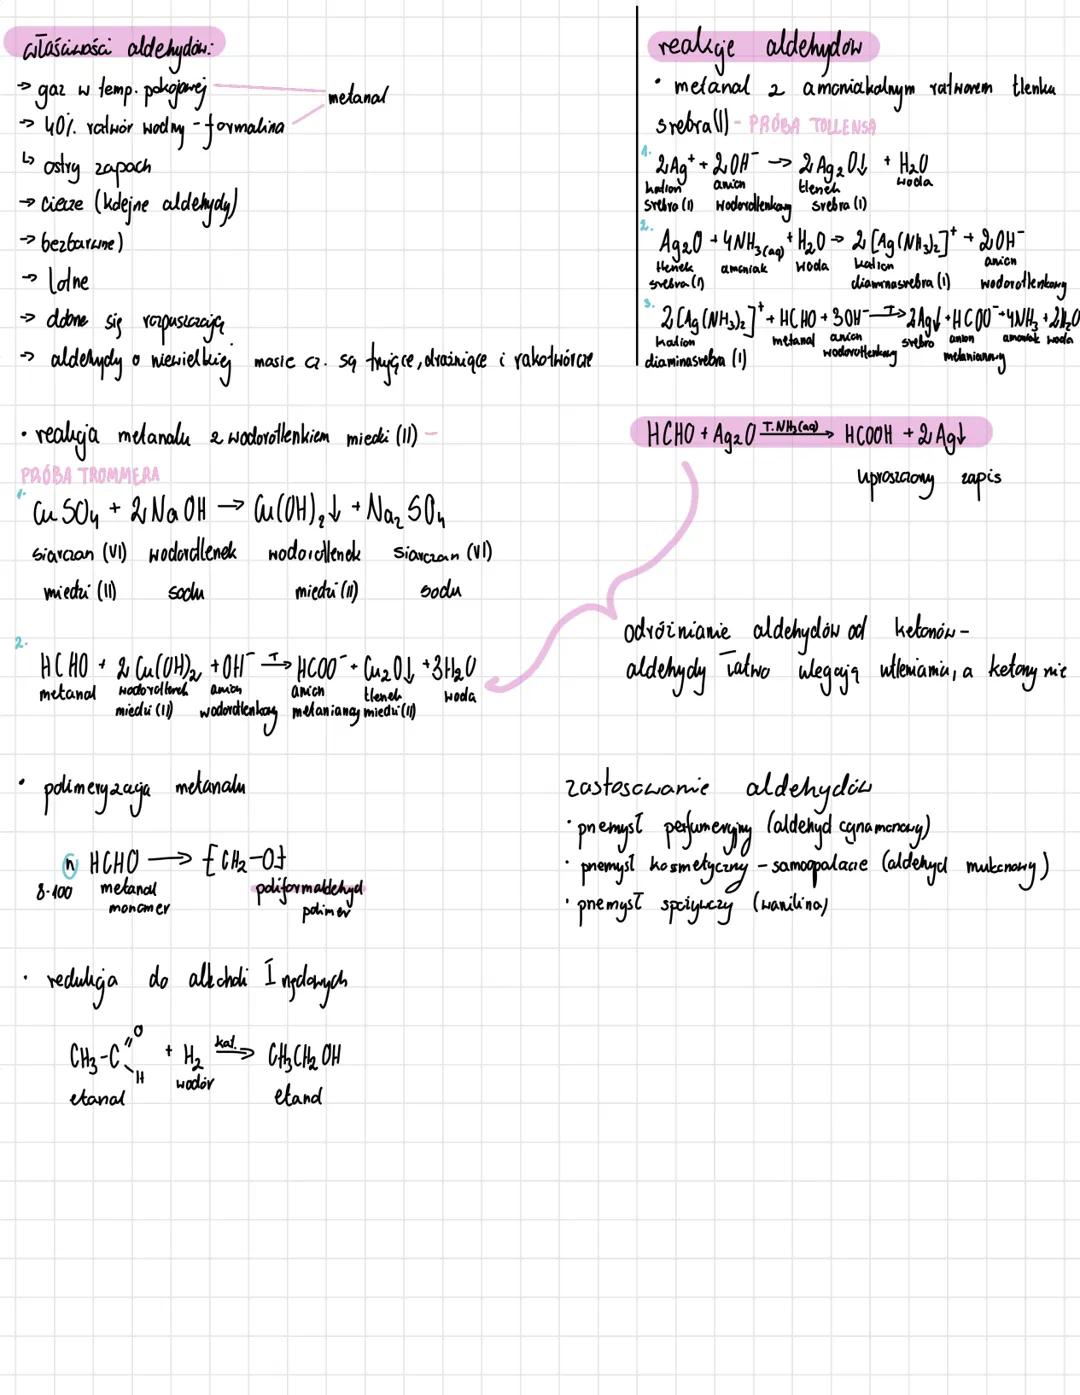 właściwości aldehydów:
→ gaz w temp. pokojowej
metanal
→ 40% roztwór wodny - formalina
↳ ostry zapach
→ ciecze (kolejne aldehydy)
→ bezbarwne)
→ lotne
→ dobrze się rozpuszczają
→ aldehydy o niewielkiej masie cz. są trujące, drażniące i rakotwórcze
reakcje aldehydów
• metanal z amoniakalnym roztworem tlenku
srebra(I) - PRÓBA TOLLENSA
1. 2Ag⁺ + 2OH⁻ → 2Ag₂O↓ + H₂O
kation anion tlenek woda
srebra (I) wodorotlenkowy srebra (I)
2. Ag₂O + 4NH₃(aq) + H₂O → 2[Ag(NH₃)₂]⁺ + 2OH⁻
tlenek amoniak woda kation anion
srebra (I) diaminasrebra (I) wodorotlenkowy
3. 2[Ag(NH₃)₂]⁺ + HCHO + 3OH⁻ T→ 2Ag↓ + HCOO⁻ + 4NH₃ + 2H₂O
kation metanal anion srebro anion amoniak woda
diaminasrebra (I) wodorotlenkowy metanianowy
HCHO + Ag₂O T. NH₃(aq)→ HCOOH + 2Ag↓
uproszczony zapis
• reakcja metanalu z wodorotlenkiem miedzi (II) -
PRÓBA TROMMERA
1. CuSO₄ + 2NaOH → Cu(OH)₂↓ + Na₂SO₄
siarczan (VI) wodorotlenek wodorotlenek siarczan (VI)
miedzi (II) sodu miedzi (II) sodu
2. HCHO + 2Cu(OH)₂ + OH⁻ T→ HCOO⁻ + Cu₂O↓ + 3H₂O
metanal wodorotlenek anion anion tlenek woda
miedzi (II) wodorotlenkowy metanianowy miedzi (II)
odróżnianie aldehydów od ketonów -
aldehydy łatwo ulegają utlenianiu, a ketony nie
• polimeryzacja metanalu
n HCHO → [CH₂-O]
8-100 metanal poliformaldehyd
monomer polimer
zastosowanie aldehydów
• przemysł perfumeryjny (aldehyd cynamonowy)
• przemysł kosmetyczny - samoopalacze (aldehyd mukonowy)
• przemysł spożywczy (wanilina)
• redukcja do alkoholi I rzędowych
CH₃-C=O H + H₂ kat.→ CH₃CH₂OH
etanal wodór etanol